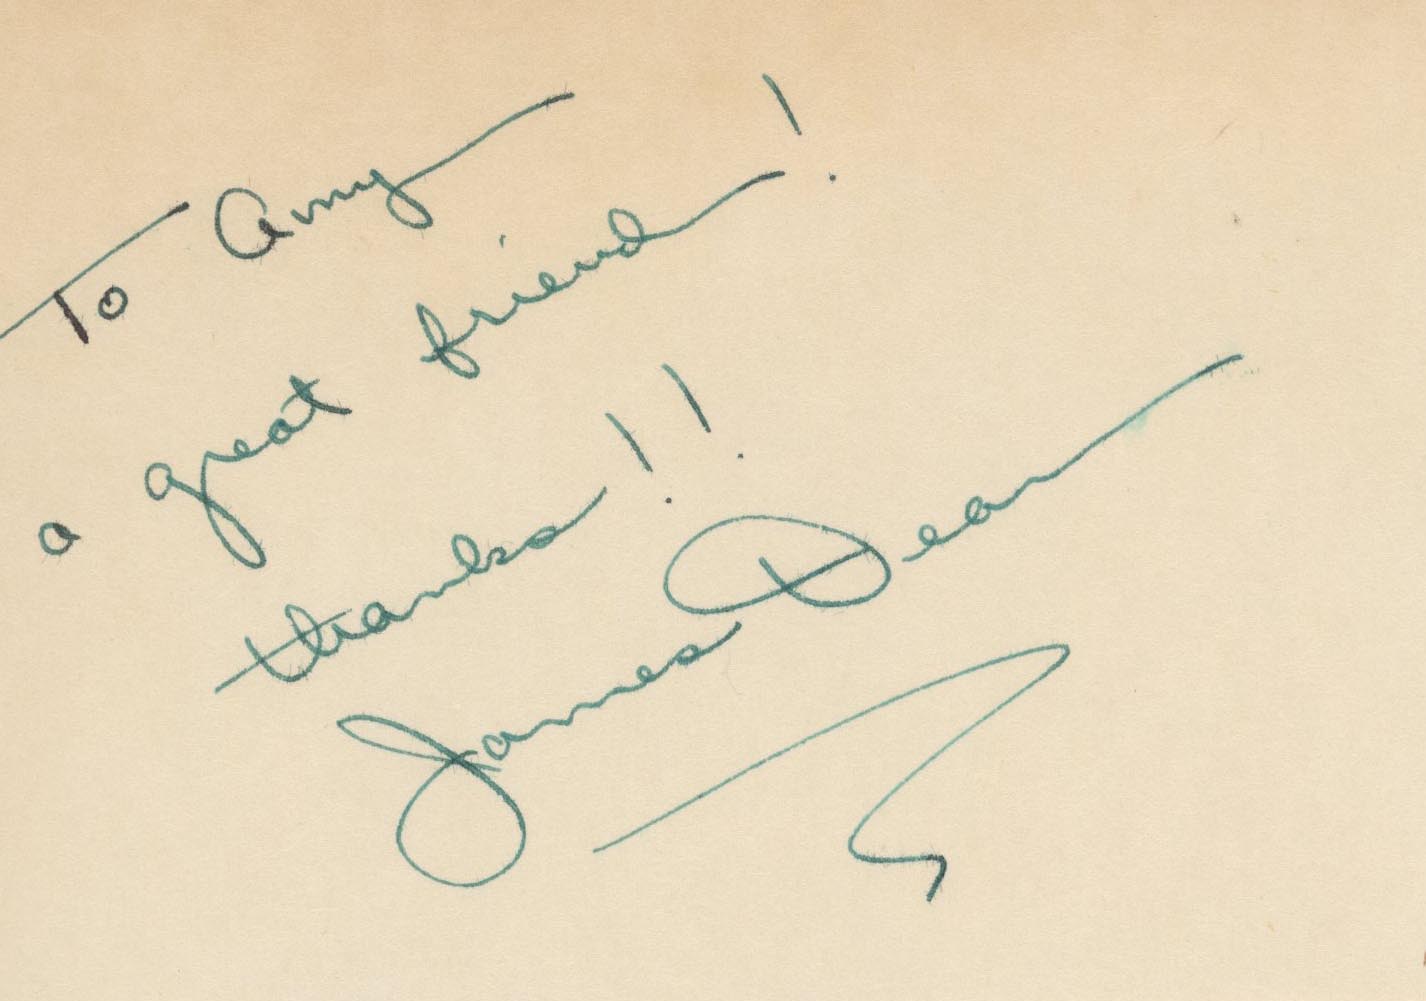 To Amy
a great friend!
thanks!!
James Dean